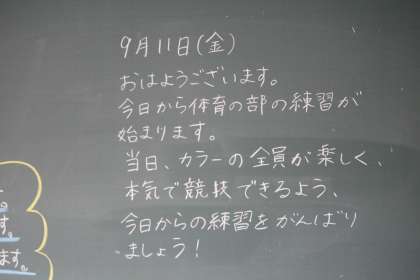 9月11日(金)
おはようございます。
今日から体育の部の練習が
始まります。
当日、カラーの全員が楽しく、
本気で競技できるよう、
今日からの練習をがんばり
ましょう!
す。
ます。